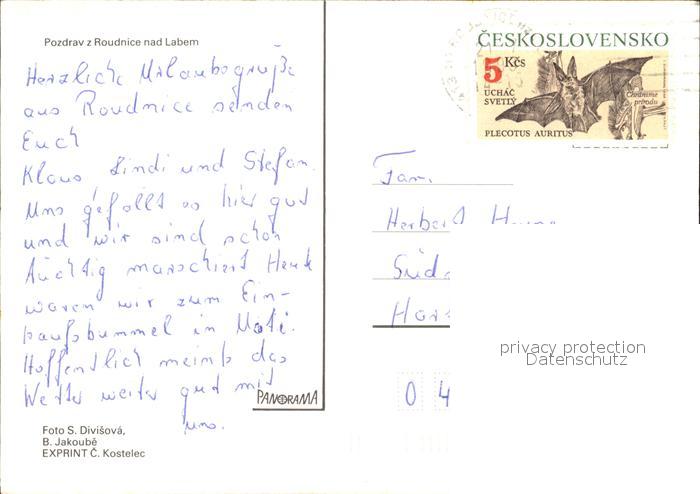 Pozdrav z Roudnice nad Labem
Herzliche Urlaubsgrüße
aus Roudnice senden
Euch
Klaus Lindi und Stefan.
Uns gefällt es hier gut
und wir sind schon
tüchtig marschiert Heute
waren wir zum Ein-
kaufsbummel in
Hoffentlich meints das
Wetter weiter gut mit
uns.
PANORAMA
Foto S. Divišová,
B. Jakoubě
EXPRINT Č. Kostelec
ČESKOSLOVENSKO
5 Kčs
UCHÁČ
SVETLÝ
PLECOTUS AURITUS
Chráníme
prírodu
Fam.
Herbert
04
privacy protection
Datenschutz